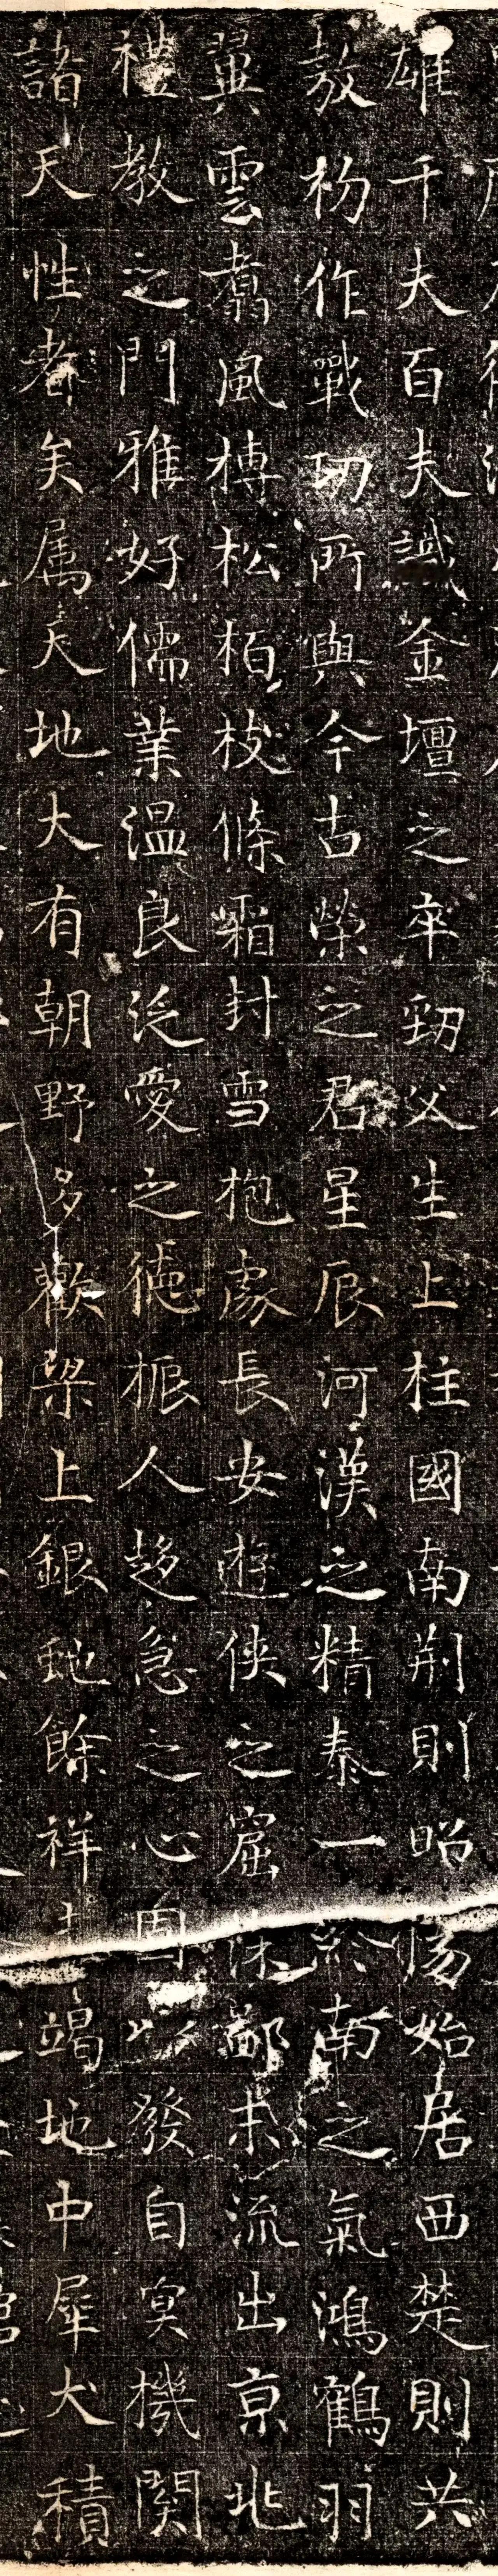 雄千夫百夫識金壇之卒劉父生上柱國南荆則昭陽始居西楚則共
敖初作戰功所與今古榮之君星辰河漢之精泰一於南之氣鴻鶴羽
翼雲翥風榑松栢枝條霜封雪抱處長安遊侠之窟沐鄙未流出京兆
禮教之門雅好儒業温良汎愛之德振人趍急之心固以發自冥機関
諸天性者矣属天地大有朝野多歡梁上銀虵餘祥竭地中犀犬積